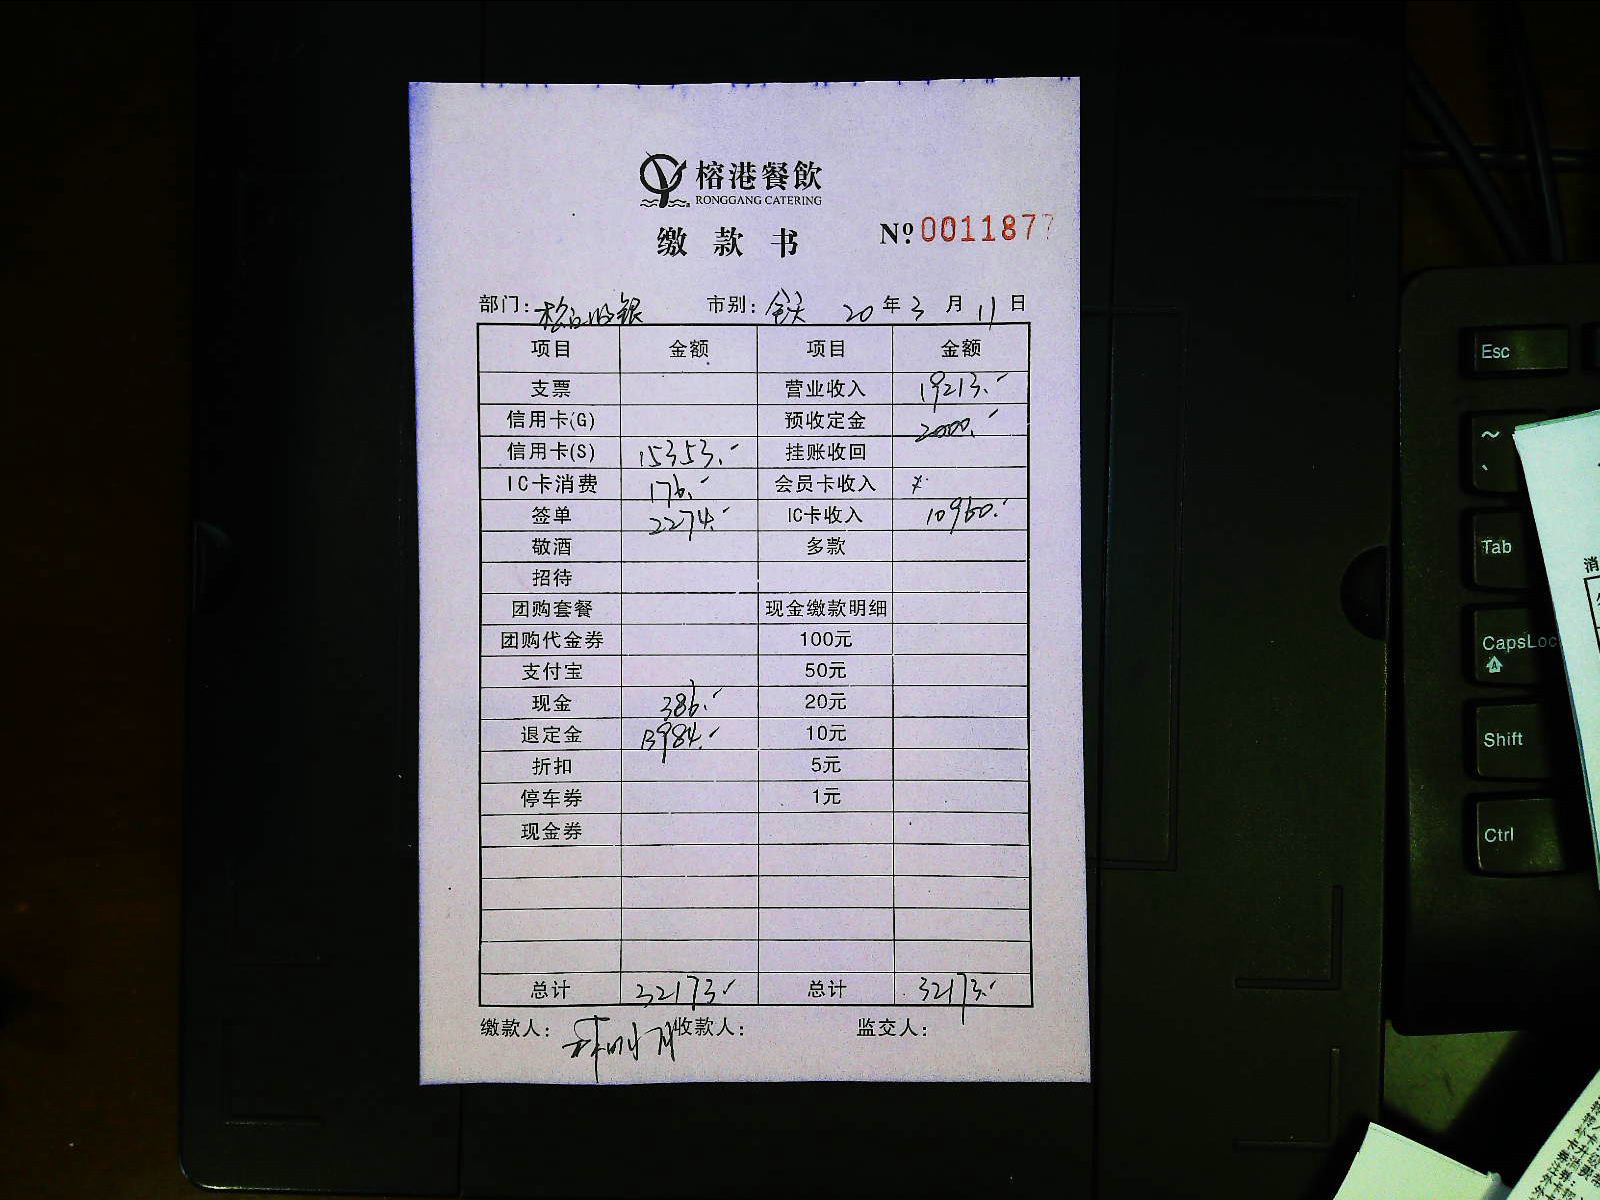 榕港餐飲
RONGGANG CATERING
缴款书 Nº 0011877
部门: 市别: 全天 20 年 3 月 11 日
项目 金额 项目 金额
支票 营业收入 19213.-
信用卡(G) 预收定金 2000.-
信用卡(S) 15353.- 挂账收回
IC卡消费 176.- 会员卡收入
签单 2274.- IC卡收入 10960.-
敬酒 多款
招待
团购套餐 现金缴款明细
团购代金券 100元
支付宝 50元
现金 386.- 20元
退定金 13984.- 10元
折扣 5元
停车券 1元
现金券
总计 32173.- 总计 32173.-
缴款人: 收款人: 监交人:
Esc
~
Tab
CapsLoc
Shift
Ctrl
消